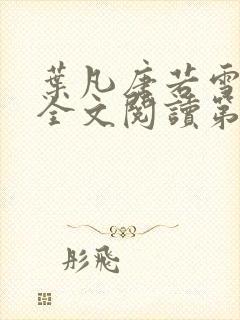 葉凡唐若雪
全文閱讀第
彤飛